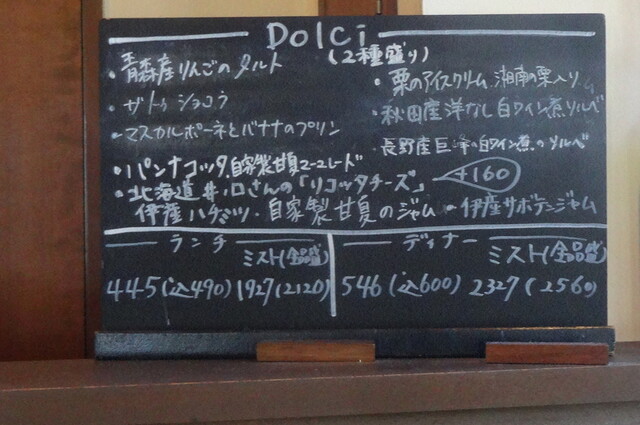 Dolci
(2種盛り)
・青森産りんごのタルト
・ザトゥ ショコラ
・マスカルポーネとバナナのプリン
・パンナコッタ 自家製甘夏マーマレード
・北海道 井ノ口さんの「リコッタチーズ」
伊産ハチミツ・自家製甘夏のジャム・伊産サボテンジャム
・栗のアイスクリーム 湘南の栗入り
・秋田産洋なし 白ワイン煮 ソルベ
・長野産巨峰の白ワイン煮のソルベ
+160
ランチ
ミスト(全品盛)
445(込490) 1927(2120)
ディナー
ミスト(全品盛)
546(込600) 2327(2560)